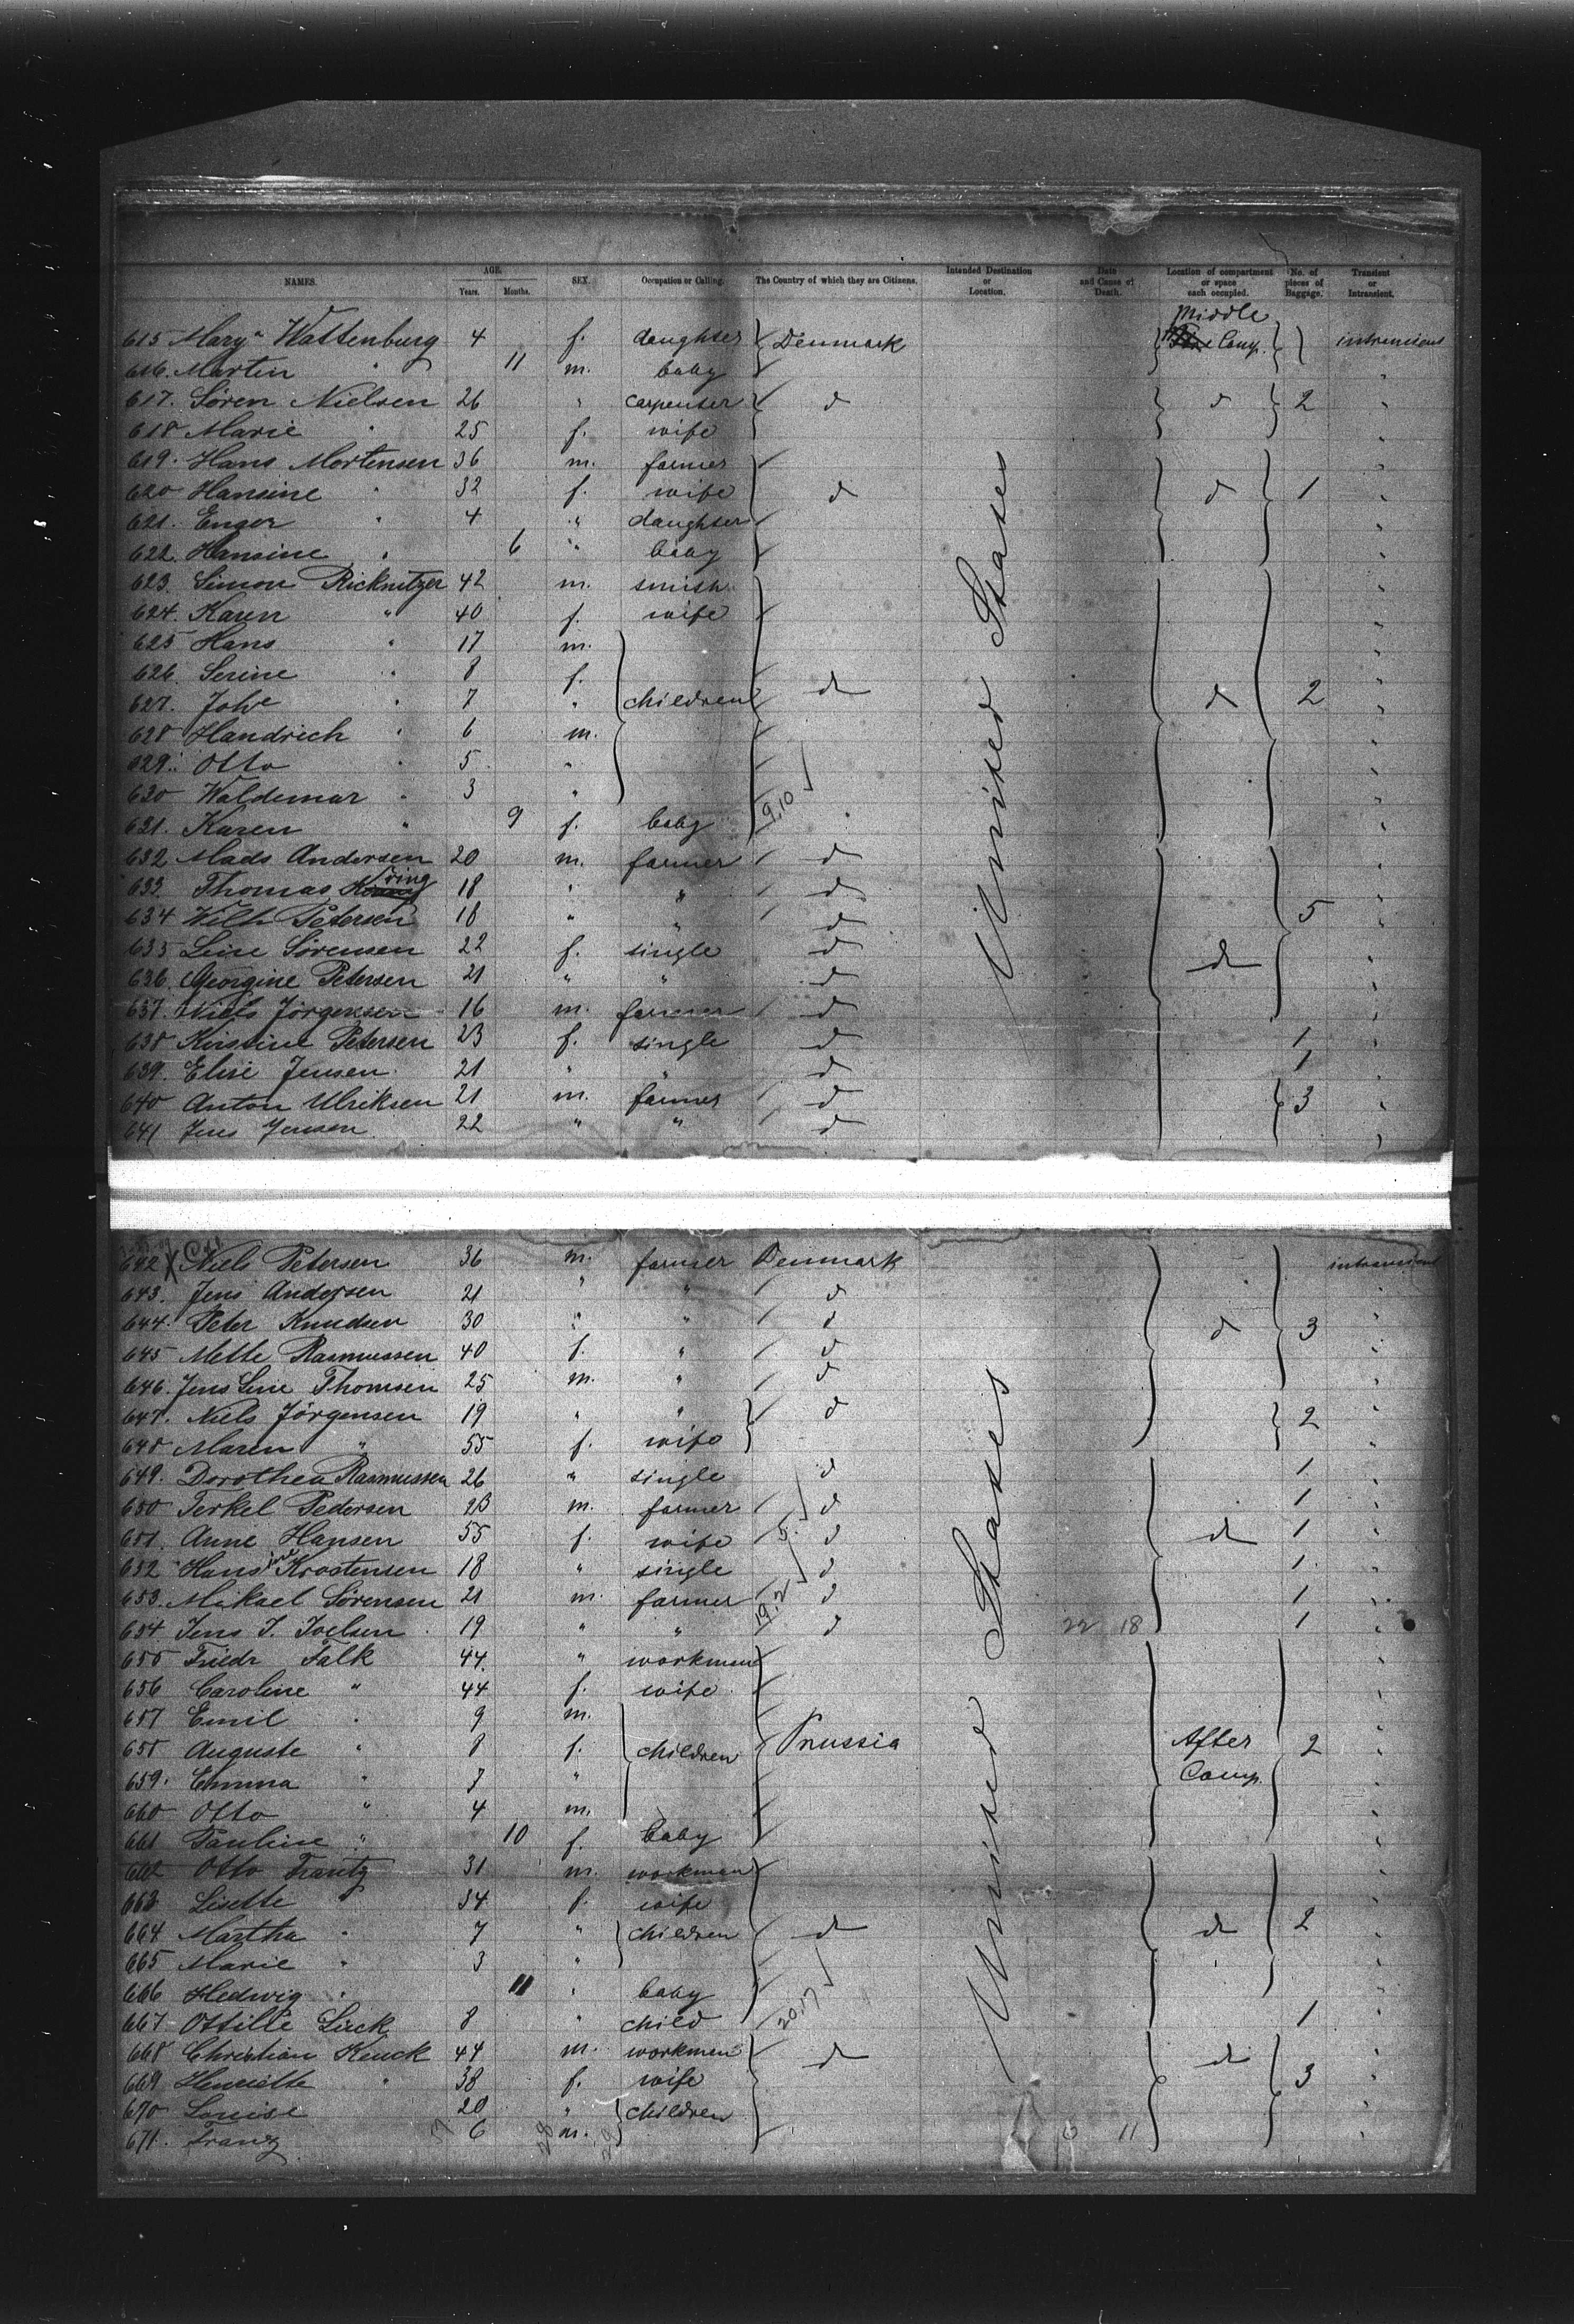 NAMES. AGE. Years. Months. SEX. Occupation or Calling. The Country of which they are Citizens. Intended Destination or Location. Date and Cause of Death. Location of compartment or space each occupied. No. of pieces of Baggage. Transient or Intransient.
615 Mary Wattenburg 4 f. daughter Denmark Middle Comp. intransient
616. Martin " 11 m. baby "
617. Sören Nielsen 26 " carpenter d d 2 "
618 Marie " 25 f. wife "
619. Hans Mortensen 36 m. farmer "
620 Hansine " 32 f. wife d d 1 "
621. Enger " 4 " daughter "
622. Hansine " 6 " baby "
623. Simon Ricknitzer 42 m. smith "
624. Karen " 40 f. wife "
625 Hans " 17 m. "
626. Serine " 8 f. "
627. Johe " 7 " children d d 2 "
628 Handrich " 6 m. "
629. Otto " 5 " "
630 Waldemar " 3 " "
631. Karen " 9 f. baby 9,10 "
632 Mads Andersen 20 m. farmer d "
633. Thomas 18 " " d "
634 Wilh Petersen 18 " " d 5 "
635 Line Sörensen 22 f. single d d "
636. Georgine Petersen 21 " " d "
637. Niels Jörgensen 16 m. farmer d "
638 Kirstine Petersen 23 f. single d 1 "
639. Elise Jensen 21 " " d 1 "
640 Anton Ulriksen 21 m. farmer d 3 "
641 Jens Jensen 22 " " d "
United States
642 X Niels Petersen 36 m. farmer Denmark intransient
643. Jens Andersen 21 " " d "
644. Peter Knudsen 30 " " d d 3 "
645 Mette Rasmussen 40 f. " d "
646. Jens Line Thomsen 25 m. " d "
647. Niels Jörgensen 19 " " d 2 "
648 Maren " 55 f. wife "
649. Dorothea Rasmussen 26 " single d 1 "
650 Terkel Pedersen 23 m. farmer d 1 "
651. Anne Hansen 55 f. wife d d 1 "
652 Hansine Krostensen 18 " single d 1 "
653. Mikael Sörensen 21 m. farmer 19,2 d 1 "
654 Jens J. Joelsen 19 " " d 22 18 1 "
655 Friedr Falk 44. " workman "
656 Caroline " 44 f. wife "
657 Emil " 9 m. "
658 Auguste " 8 f. children Prussia After Comp. 2 "
659. Emma " 7 " "
660 Otto " 4 m. "
661 Pauline " 10 f. baby "
662 Otto Frantz 31 m. workman "
663 Lisette " 34 f. wife "
664 Martha " 7 " children d d 2 "
665 Marie " 3 " "
666 Hedwig " 11 " baby "
667 Ottilie Lück 8 " child 20,17 1 "
668 Christian Keuck 44 m. workman d d "
669 Henriette " 38 f. wife 3 "
670 Louise 20 " children "
671. Franz 6 m. 11 "
United States